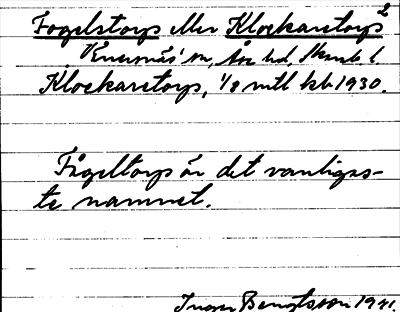 Fogelstorp eller Klockaretorp²
Enesnäs' sn, Ås hd, Skarab. l.
Klockaretorp, 1/8 mtl kb 1930.
Fågeltorp är det vanligas-
te namnet.
Inger Bengtsson 1941.